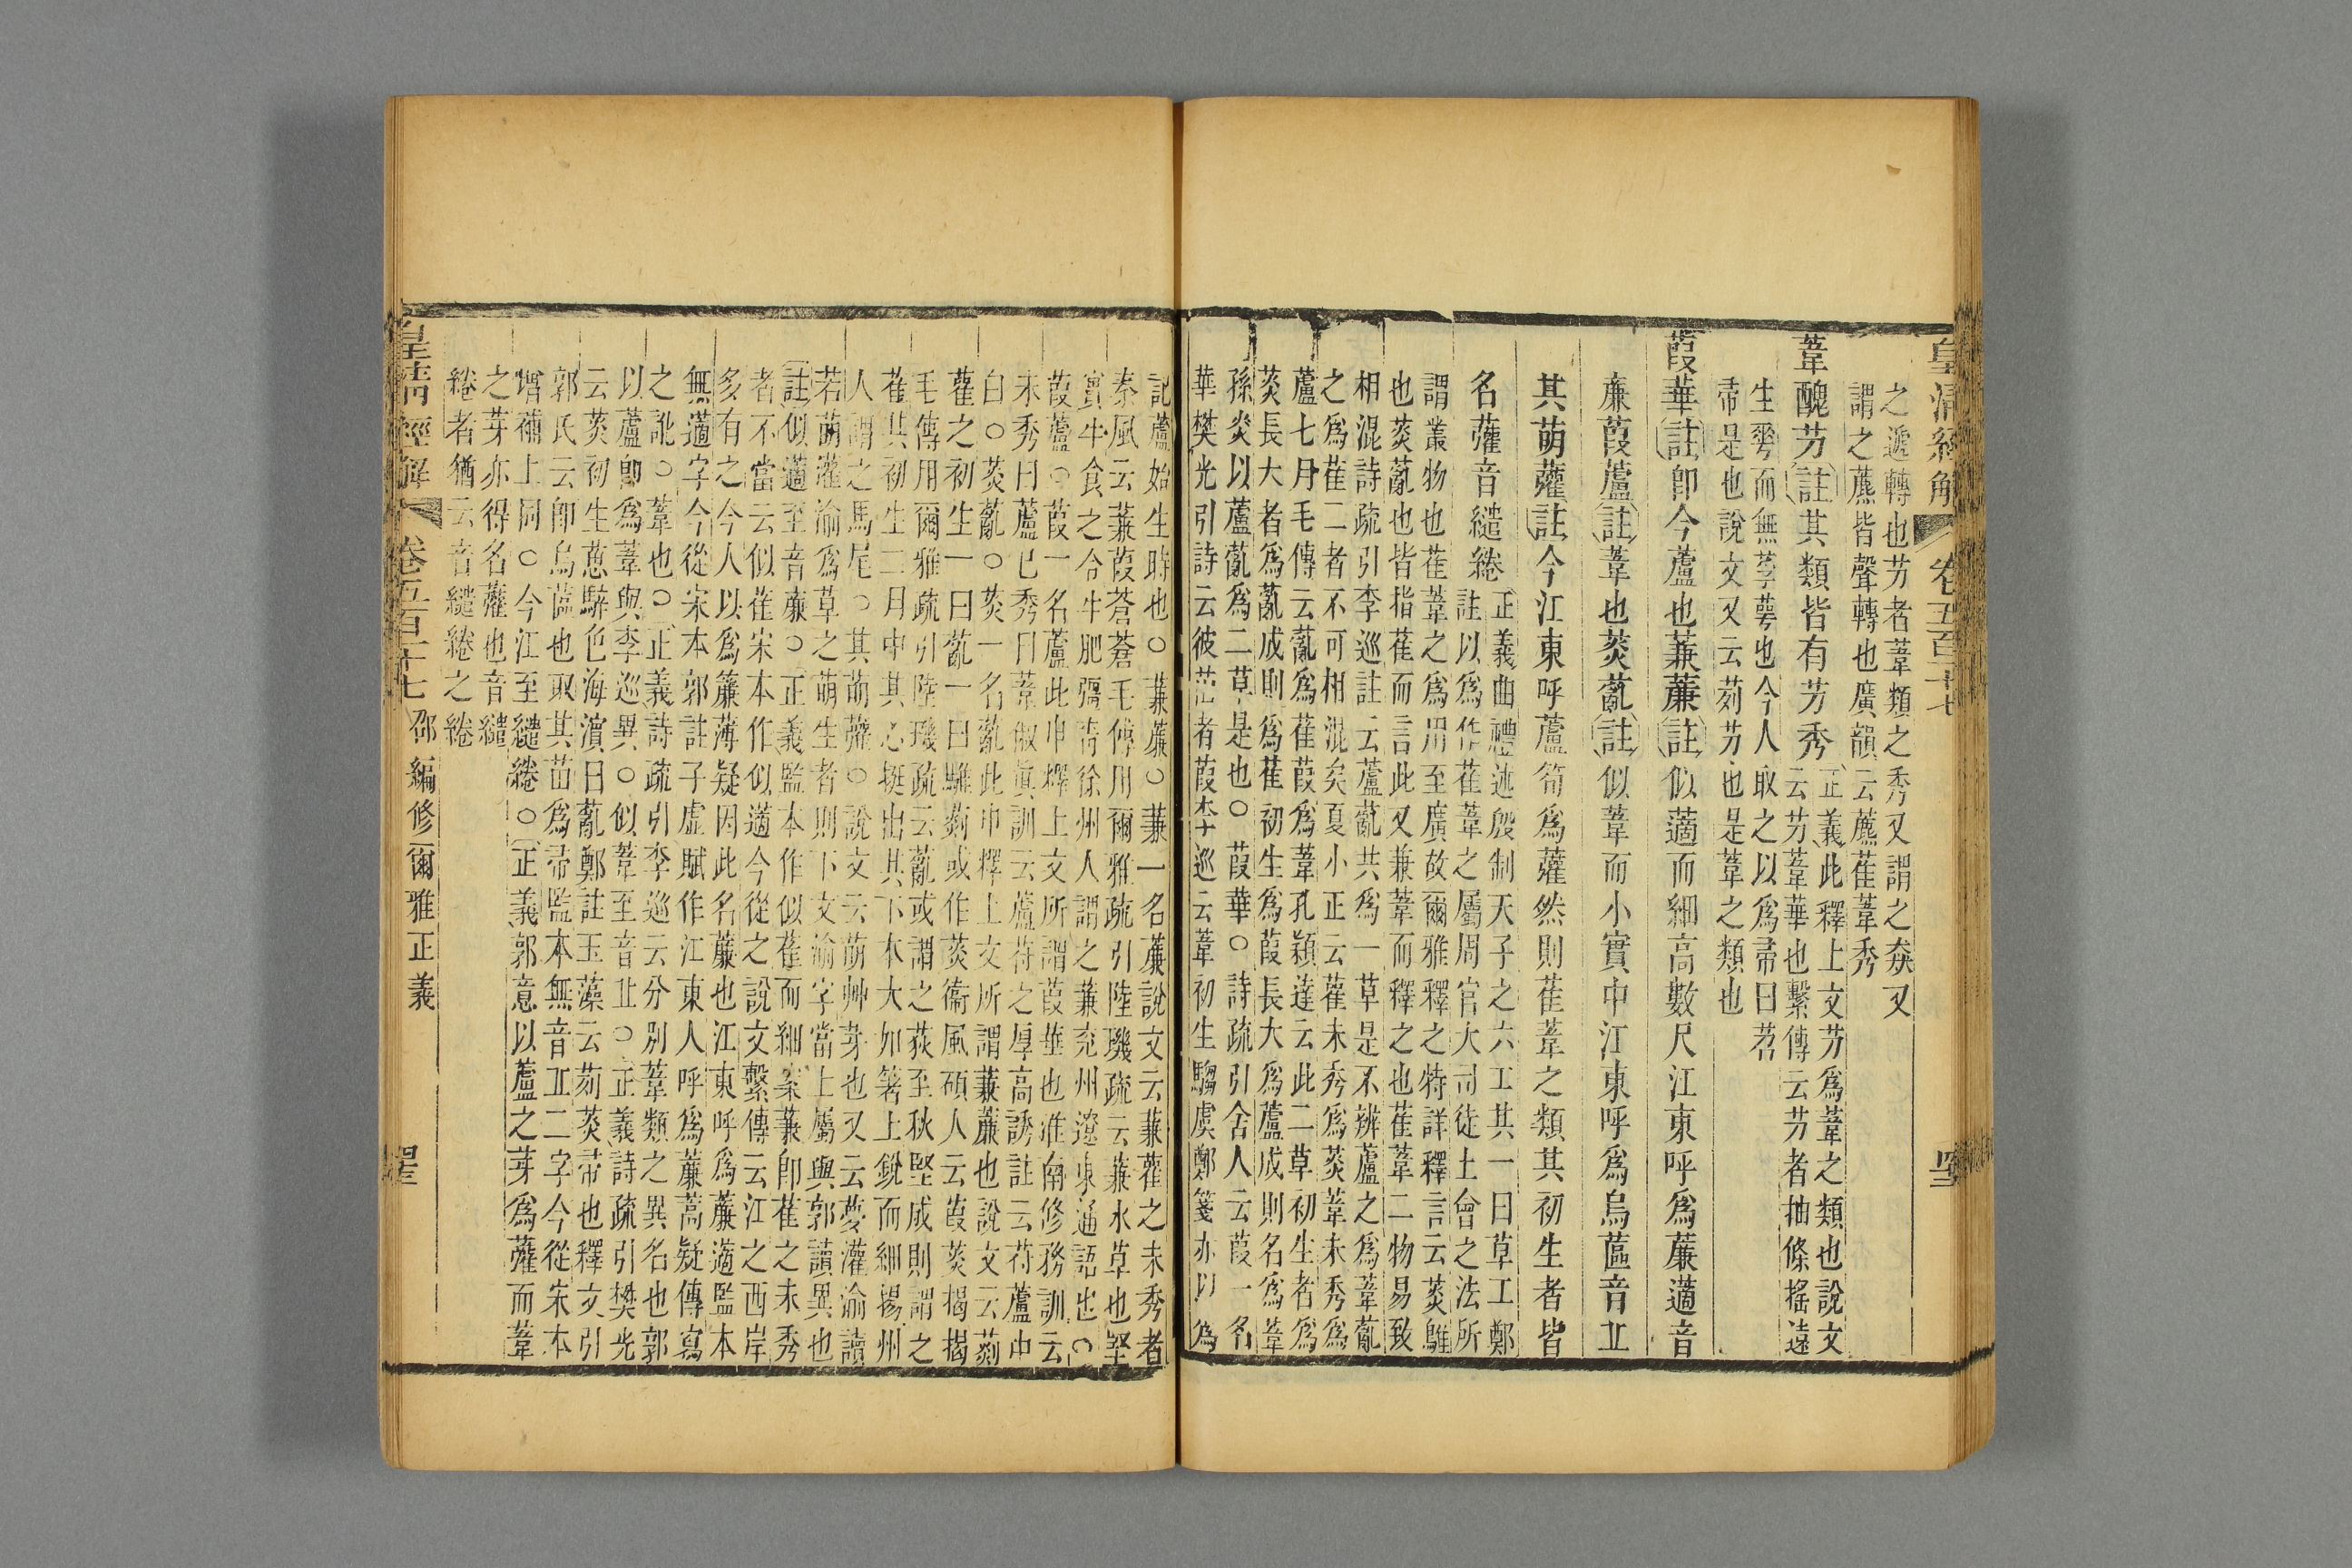 皇清經解 卷五百十七
之遞轉也芀者葦類之秀又謂之猋又
謂之藨皆聲轉也廣韻云藨萑葦秀
葦醜芀註其類皆有芀秀
正義此釋上文芀爲葦之類也說文
云芀葦華也繫傳云芀者抽條搖遠
生華而無莩萼也今人取之以爲帚曰苕
帚是也說文又云茢芀也是葦之類也
葭華註卽今蘆也蒹薕註似藡而細高數尺江東呼爲薕藡音
廉葭蘆註葦也菼薍註似葦而小實中江東呼爲烏蓲音丘
其萌虇註今江東呼蘆筍爲虇然則萑葦之類其初生者皆
名虇音繾綣
正義曲禮述殷制天子之六工其一曰草工鄭
註以爲作萑葦之屬周官大司徒土會之法所
謂叢物也萑葦之爲用至廣故爾雅釋之特詳釋言云菼鵻
也菼薍也皆指萑而言此又兼葦而釋之也萑葦二物易致
相混詩疏引李巡註云蘆薍共爲一草是不辨蘆之爲葦薍
之爲萑二者不可相混矣夏小正云萑未秀爲菼葦未秀爲
蘆七月毛傳云薍爲萑葭爲葦孔穎達云此二草初生者爲
菼長大者爲薍成則爲萑初生爲葭長大爲蘆成則名爲葦
孫炎以蘆薍爲二草是也○葭華○詩疏引舍人云葭一名
華樊光引詩云彼茁者葭李巡云葦初生騶虞鄭箋亦以爲
記蘆始生時也○蒹薕○蒹一名薕說文云蒹雚之未秀者
秦風云蒹葭蒼蒼毛傳用爾雅疏引陸璣疏云蒹水草也堅
實牛食之令牛肥彊靑徐州人謂之蒹兗州遼東通語也○
葭蘆○葭一名蘆此申釋上文所謂葭華也淮南修務訓云
未秀曰蘆已秀曰葦俶眞訓云蘆苻之厚高誘註云苻蘆中
白○菼薍○菼一名薍此申釋上文所謂蒹薕也說文云菼
雚之初生一曰薍一曰鵻菼或作菼衞風碩人云葭菼揭揭
毛傳用爾雅疏引陸璣疏云薍或謂之荻至秋堅成則謂之
萑其初生三月中其心挺出其下本大如箸上銳而細揚州
人謂之馬尾○其萌虇○說文云萌艸芽也又云夢灌渝讀
若萌灌渝爲草之萌生者則下文渝字當上屬與郭讀異也
註似藡至音廉○正義監本作似萑而細案蒹卽萑之未秀
者不當云似萑宋本作似藡今從之說文繫傳云江之西岸
多有之今人以爲簾薄疑因此名薕也江東呼爲薕藡監本
無藡字今從宋本郭註子虛賦作江東人呼爲薕蒚疑傳寫
之訛○葦也○正義詩疏引李巡云分別葦類之異名也郭
以蘆卽爲葦與李巡異○似葦至音丘○正義詩疏引樊光
云菼初生葸騂色海濱曰薍鄭註玉藻云茢菼帚也釋文引
郭氏云卽烏蓲也取其苗爲帚監本無音丘二字今從宋本
增補上同○今江至繾綣○正義郭意以蘆之芽爲虇而葦
之芽亦得名虇也音繾
綣者猶云音繾綣之綣
皇清經解 卷五百十七 邵編修爾雅正義